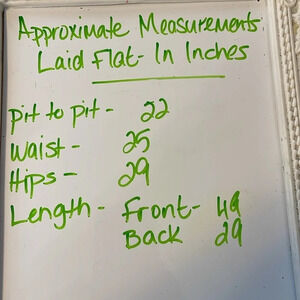 Approximate Measurements
Laid Flat- In Inches
Pit to pit - 22
Waist - 25
Hips - 29
Length - Front- 49
Back 29